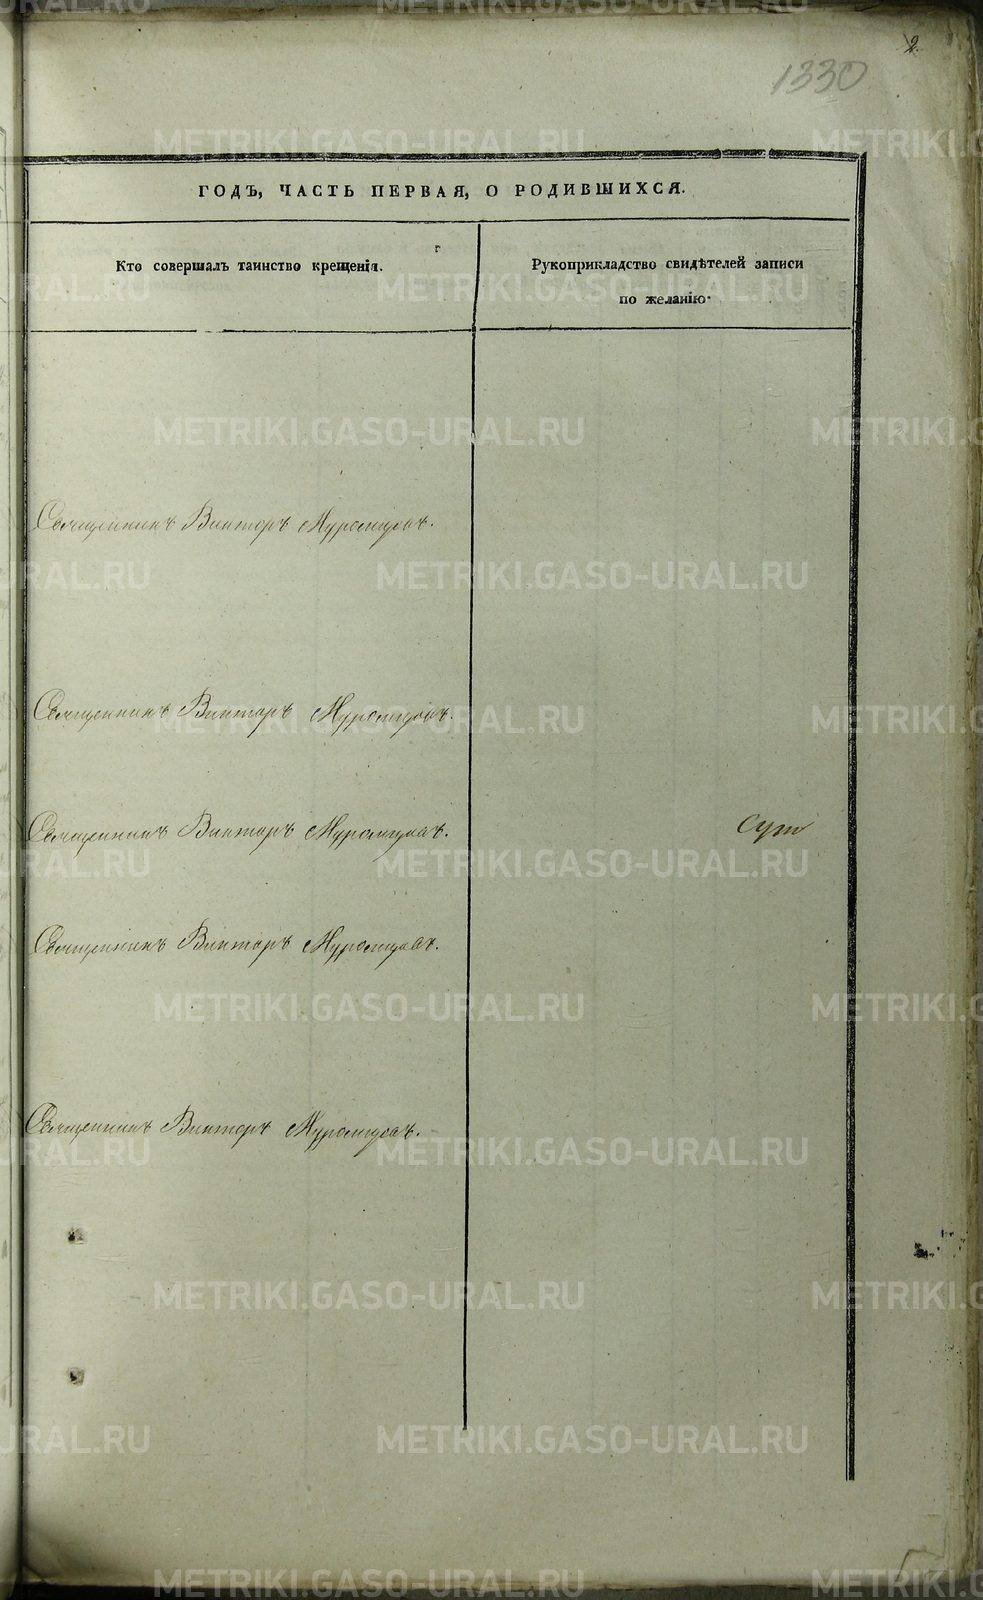 2
1330
ГОДЪ, ЧАСТЬ ПЕРВАЯ, О РОДИВШИХСЯ.
Кто совершалъ таинство крещенія.
Рукоприкладство свидѣтелей записи
по желанію.
Священникъ Викторъ
Священникъ Викторъ
Священникъ Викторъ
Священникъ Викторъ
Священникъ Викторъ
METRIKI.GASO-URAL.RU